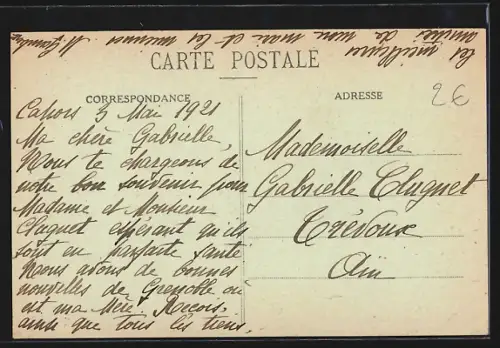 CARTE POSTALE
CORRESPONDANCE
Cahors 3 Mai 1921
Ma chère Gabrielle,
Nous te chargeons de
notre bon souvenir pour
Madame et Monsieur
Cluquet espérant qu'ils
sont en parfaite santé
Nous avons de bonnes
nouvelles de Grenoble où
est ma Mère. Reçois,
ainsi que tous les tiens,
les meilleures
amitiés de mon mari et les miennes
ADRESSE
26
Mademoiselle
Gabrielle Cluquet
Trévoux
Ain